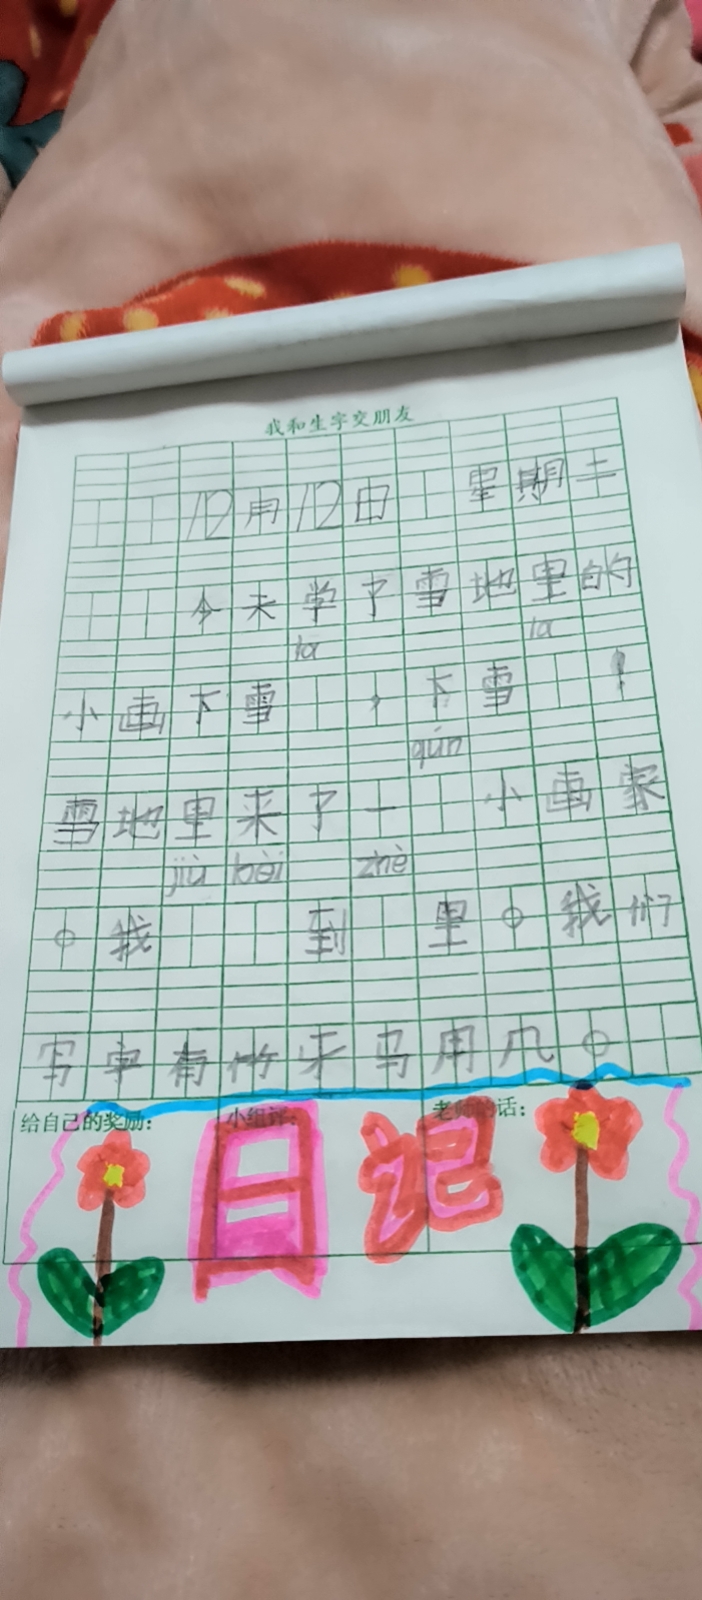 我和生字交朋友
12月12日 星期二
今天学了雪地里的
la la
小画下雪 ，下雪 ！
qún
雪地里来了一 小画家
jiù bèi zhè
。我 到 里。我们
写字有竹牙马用几。
给自己的奖励： 小组评： 老师的话：
日记